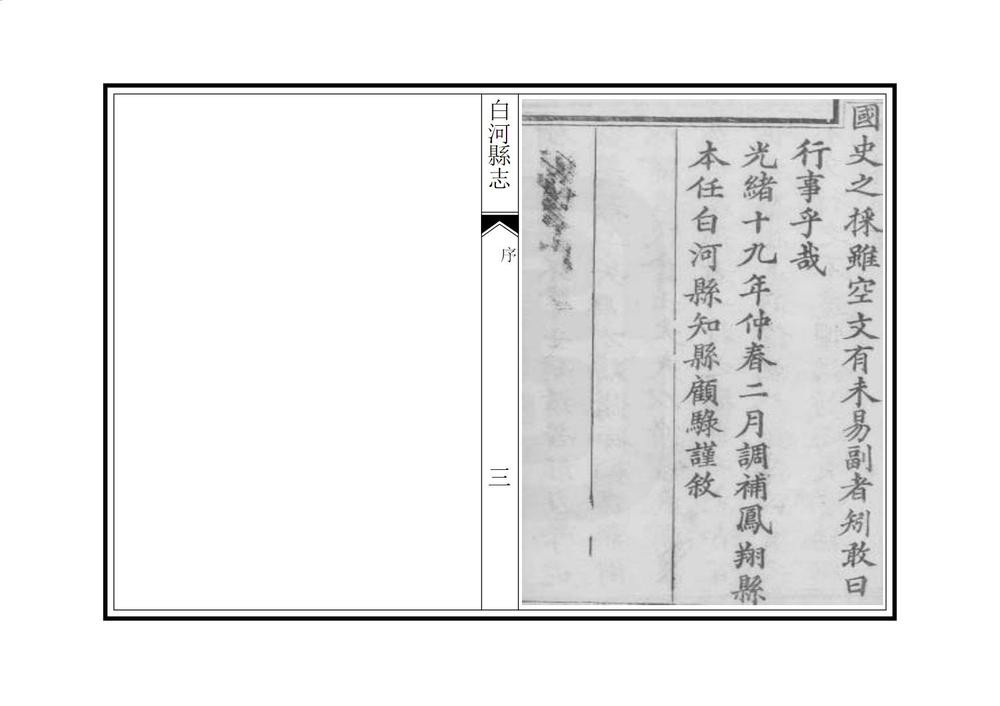 國史之採雖空文有未易副者矧敢曰
行事乎哉
光緒十九年仲春二月調補鳳翔縣
本任白河縣知縣顧騄謹敘
白河縣志
序
三